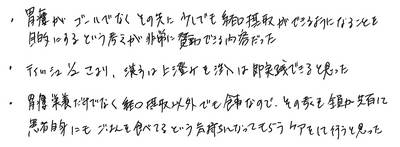 ・胃瘻がゴールでなく その先に 少しでも 経口摂取ができるようになることを
目的にする という考えが 非常に 賛同できる内容だった
・ティッシュ1/2 こより、漢方は上澄みを注入は即実践できると思った
・胃瘻栄養だけでなく経口摂取以外でも食事なので、その考えを全員が共有に
患者自身にも ごはんを食べてるという気持ちになってもらうケアをして行こうと思った